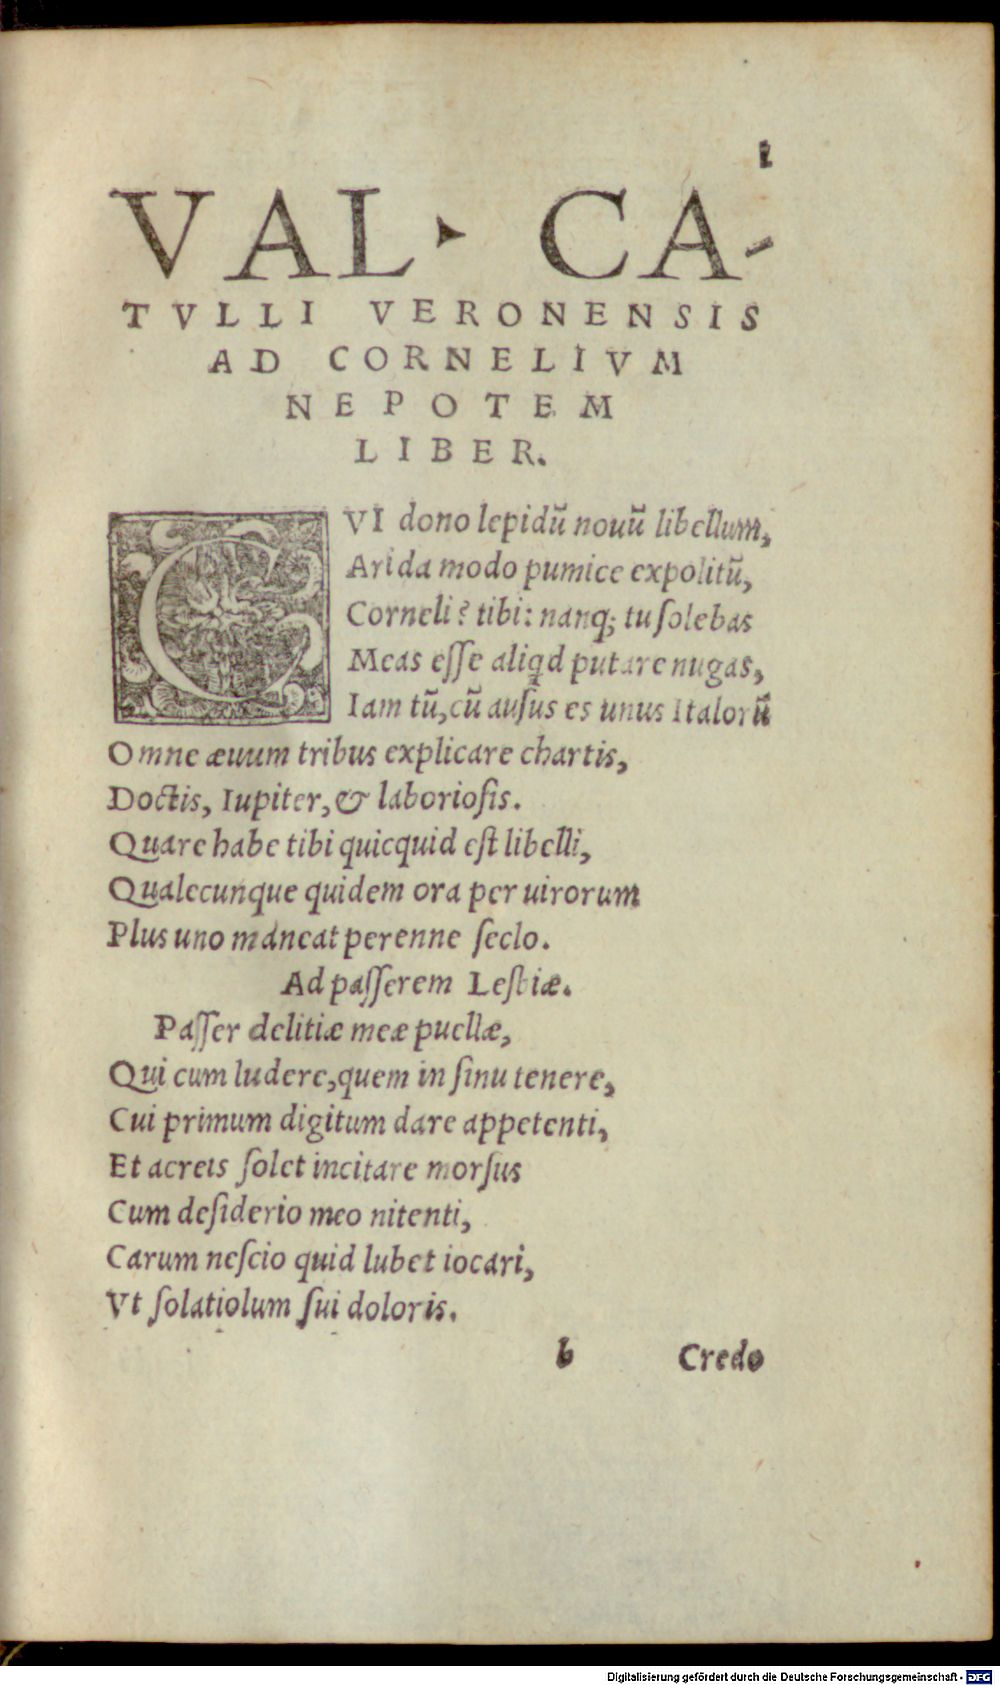 1
VAL· CA-
TVLLI VERONENSIS
AD CORNELIVM
NEPOTEM
LIBER.
CVI dono lepidũ nouũ libellum,
Arida modo pumice expolitũ,
Corneli? tibi: nanq; tu ſolebas
Meas eſſe aliqd putare nugas,
Iam tũ, cũ auſus es unus Italorũ
Omne æuum tribus explicare chartis,
Doctis, Iupiter, & laborioſis.
Quare habe tibi quicquid eſt libelli,
Qualecunque quidem ora per uirorum
Plus uno maneat perenne ſeclo.
Ad paſſerem Lesbiæ.
Paſſer delitiæ meæ puellæ,
Qui cum ludere, quem in ſinu tenere,
Cui primum digitum dare appetenti,
Et acreis ſolet incitare morſus
Cum deſiderio meo nitenti,
Carum neſcio quid lubet iocari,
Vt ſolatiolum ſui doloris.
b Credo
Digitalisierung gefördert durch die Deutsche Forschungsgemeinschaft - DFG